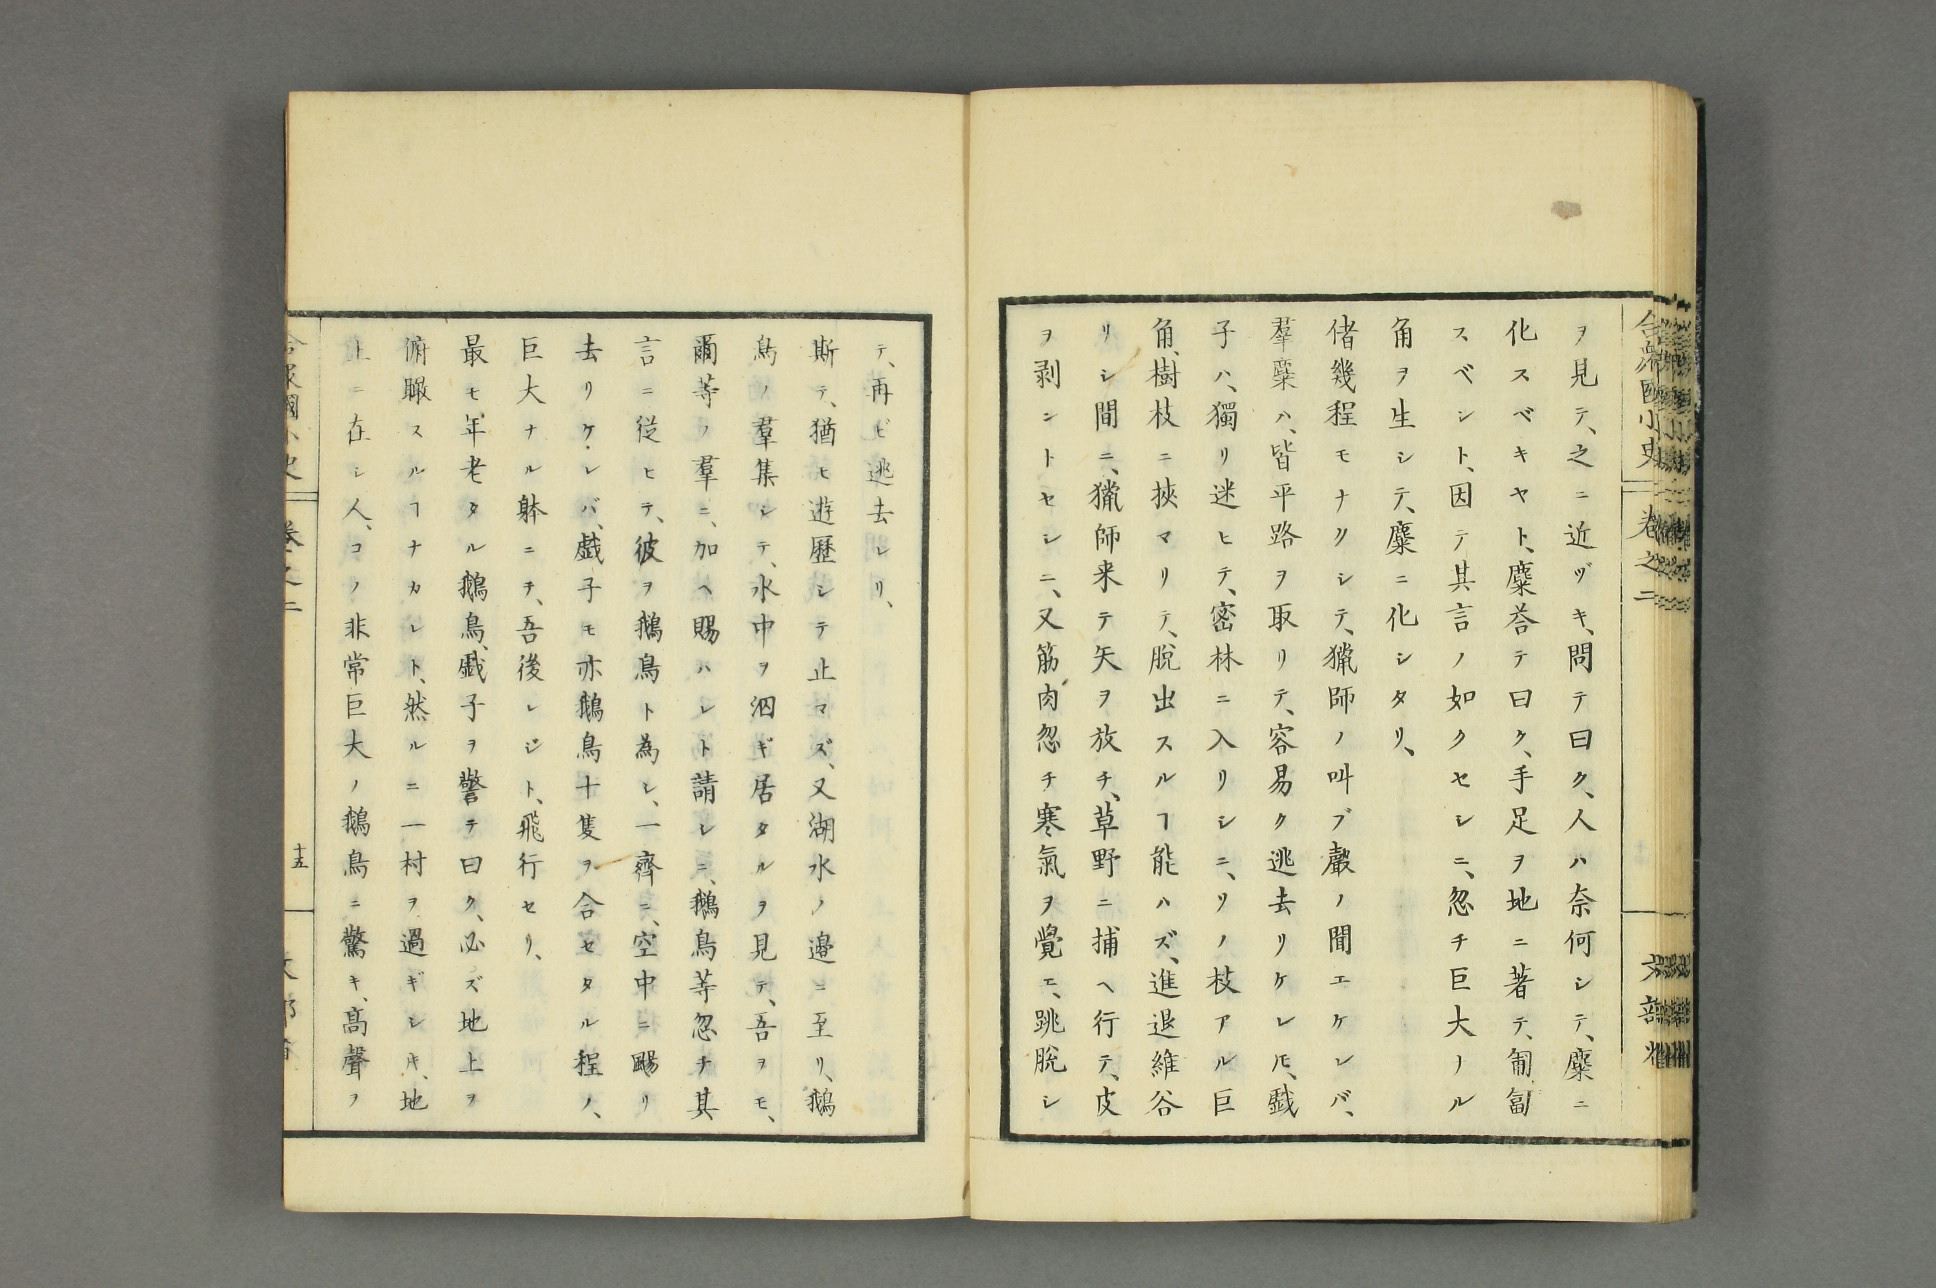 合衆國小史
卷之二
文部省
ヲ見テ、之ニ近ヅキ、問テ曰ク、人ハ奈何シテ、麋ニ
化スベキヤト、麋荅テ曰ク、手足ヲ地ニ著テ、匍匐
スベシト、因テ其言ノ如クセシニ、忽チ巨大ナル
角ヲ生シテ、麋ニ化シタリ、
偖幾程モナクシテ、獵師ノ叫ブ聲ノ聞エケレバ、
羣麋ハ、皆平路ヲ取リテ、容易ク逃去リケレ𪜈、戯
子ハ、獨リ迷ヒテ、密林ニ入リシニ、ソノ枝アル巨
角、樹枝ニ挾マリテ、脫出スルヿ能ハズ、進退維谷
リシ間ニ、獵師来テ矢ヲ放チ、草野ニ捕ヘ行テ、皮
ヲ剥ントセシニ、又筋肉忽チ寒氣ヲ覺エ、跳脫シ
テ、再ビ逃去レリ、
斯テ、猶モ遊歷シテ止マズ、又湖水ノ邉ニ至リ、鵝
鳥ノ羣集シテ、水中ヲ泅ギ居タルヲ見テ、吾ヲモ、
爾等ノ羣ニ、加ヘ賜ハレト請シニ、鵝鳥等忽チ其
言ニ従ヒテ、彼ヲ鵝鳥ト為シ、一齊ニ、空中ニ颺リ
去リケレバ、戯子モ亦鵝鳥十隻ヲ合セタル程ノ、
巨大ナル躰ニテ、吾後レジト、飛行セリ、
最モ年老タル鵝鳥、戯子ヲ警テ曰ク、必ズ地上ヲ
俯瞰スルヿナカレト、然ルニ一村ヲ過ギシ𪜈、地
上ニ在シ人、コノ非常巨大ノ鵝鳥ニ驚キ、高聲ヲ
合衆國小史
卷之二
十五
文部省